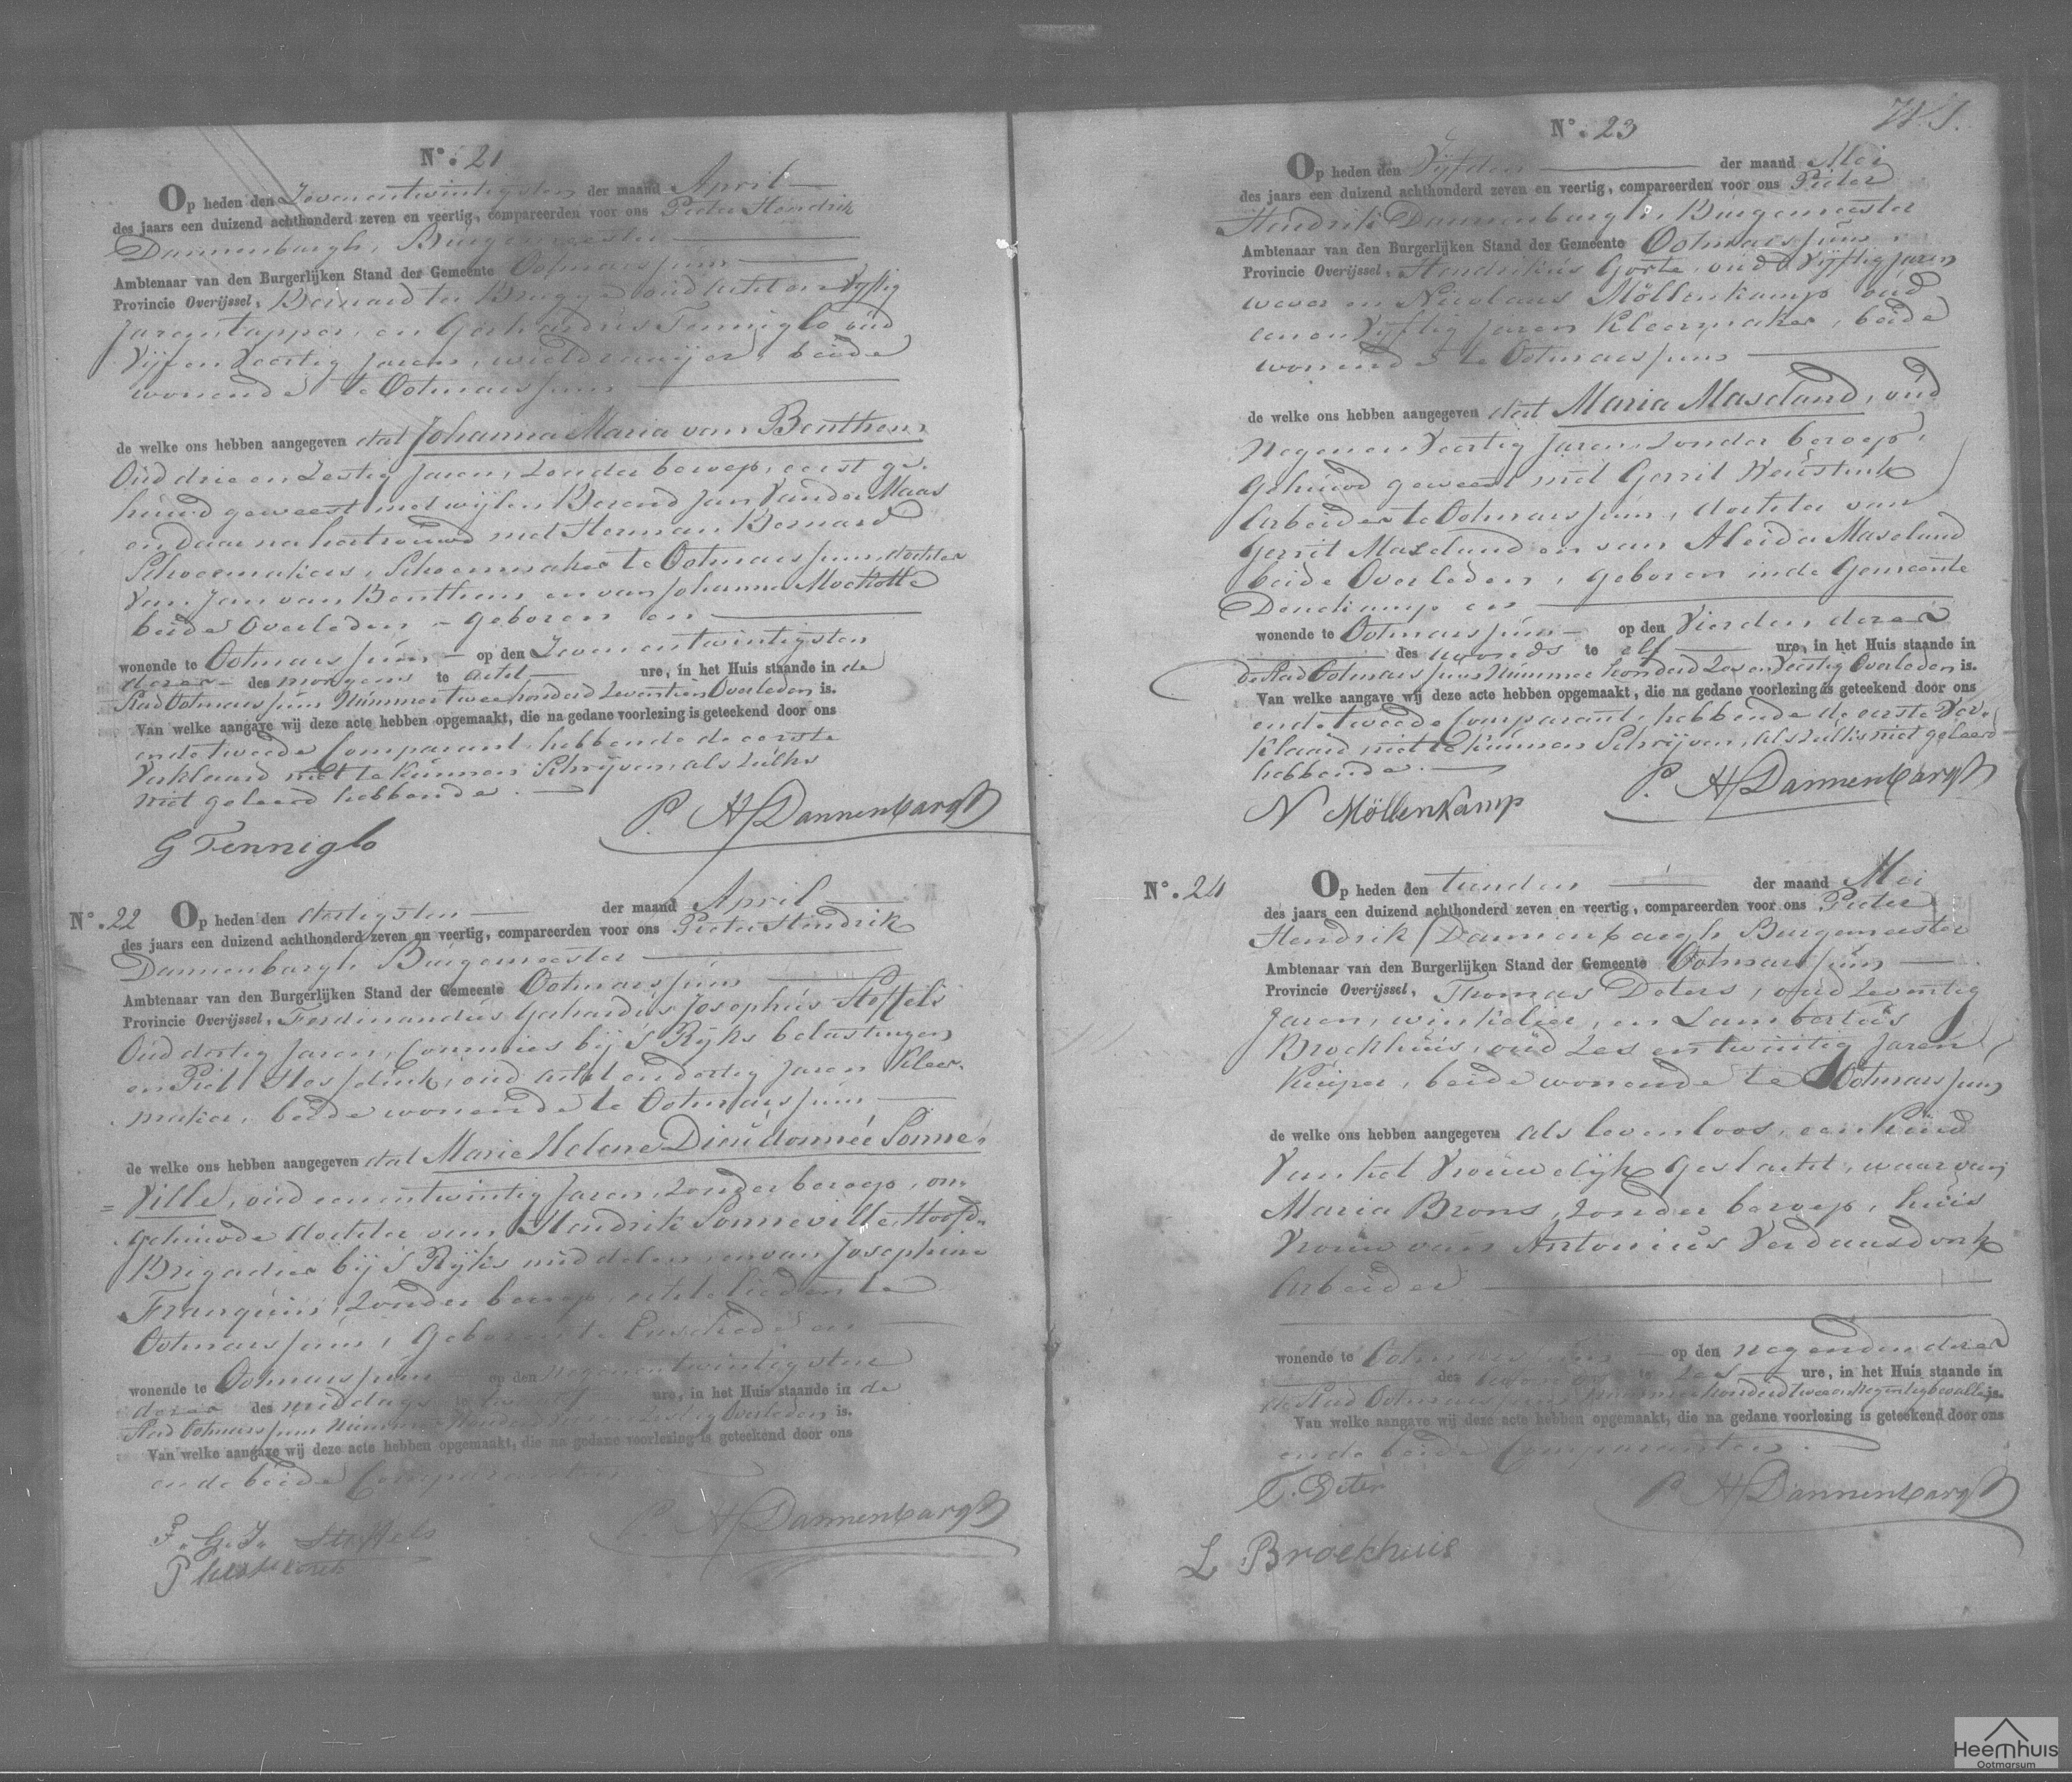 N°. 21
Op heden den Zevenentwintigsten der maand April
des jaars een duizend achthonderd zeven en veertig, compareerden voor ons Pieter Hendrik
Dannenbargh, Burgemeester
Ambtenaar van den Burgerlijken Stand der Gemeente Ootmarssum
Provincie Overijssel, Bernard ter Brugge oud acht en Vyftig
Jaren tapper, en Gerhardus Tenniglo oud
Vijf en Veertig Jaren, wieldraaijer, beide
wonende te Ootmarssum
de welke ons hebben aangegeven dat Johanna Maria van Benthem
Oud drie en Zestig Jaren, Zonder beroep, eerst ge-
huwd geweest met wijlen Berend Jan Van der Maas
en daar na hertrouwd met Herman Bernard
Schoemakers, Schoenmaker te Ootmarssum, dochter
Van Jan van Benthem en van Johanna
beide Overleden – geboren en
wonende te Ootmarssum – op den Zevenentwintigsten
dezer des morgens te acht ure, in het Huis staande in de
Stad Ootmarssum Nummer twee honderd Zeventien Overleden is.
Van welke aangave wij deze acte hebben opgemaakt, die na gedane voorlezing is geteekend door ons
en de tweede Comparant, hebbende de eerste
Verklaard niet te kunnen Schrijven als Zulks
niet geleerd hebbende.
P. H. Dannenbargh
G Tenniglo
N°. 22
Op heden den dertigsten der maand April
des jaars een duizend achthonderd zeven en veertig, compareerden voor ons Pieter Hendrik
Dannenbargh Burgemeester
Ambtenaar van den Burgerlijken Stand der Gemeente Ootmarssum
Provincie Overijssel, Ferdinandus Gerhardus Josephus Stoffels
Oud dertig Jaren, Commies bij 's Rijks belastingen
en Piet oud acht en dertig Jaren Kleer-
maker, beide wonende te Ootmarssum
de welke ons hebben aangegeven dat Marie Helene Dieudonnée Sonne-
= Ville, oud eenentwintig Jaren, Zonder beroep, on-
gehuwde dochter van Hendrik Sonneville, Hoofd-
Brigadier bij 's Rijks middelen, en van Josephine
Franquin, Zonder beroep, echtelieden te
Ootmarssum, Geboren te Enschede en
wonende te Ootmarssum – op den negenentwintigsten
dezer des middags ure, in het Huis staande in de
Stad Ootmarssum Nummer Honderd Zestig Overleden is.
Van welke aangave wij deze acte hebben opgemaakt, die na gedane voorlezing is geteekend door ons
en de beide Comparanten
P. H. Dannenbargh
F. G. J. Stoffels
N°. 23
Op heden den Vijfden der maand Mei
des jaars een duizend achthonderd zeven en veertig, compareerden voor ons Pieter
Hendrik Dannenbargh, Burgemeester
Ambtenaar van den Burgerlijken Stand der Gemeente Ootmarssum
Provincie Overijssel, Hendrikus Gorte, oud Vijftig Jaren
wever en Nicolaas Möllenkamp oud
een en Vijftig Jaren Kleermaker, beide
wonende te Ootmarssum
de welke ons hebben aangegeven dat Maria Maseland, oud
Negen en Veertig Jaren, Zonder beroep,
Gehuwd geweest met Gerrit
Arbeider te Ootmarssum, dochter van
Gerrit Maseland en van Aleida Maseland
beide Overleden, geboren in de Gemeente
Denekamp en
wonende te Ootmarssum – op den Vierden dezer
des avonds te elf ure, in het Huis staande in
de Stad Ootmarssum Nummer honderd Zes en Veertig Overleden is.
Van welke aangave wij deze acte hebben opgemaakt, die na gedane voorlezing is geteekend door ons
en de tweede Comparant, hebbende de eerste Ver-
klaard niet te kunnen Schrijven, als Zulks niet geleerd
hebbende.
P. H. Dannenbargh
N Möllenkamp
N°. 24
Op heden den tienden der maand Mei
des jaars een duizend achthonderd zeven en veertig, compareerden voor ons Pieter
Hendrik Dannenbargh Burgemeester
Ambtenaar van den Burgerlijken Stand der Gemeente Ootmarssum
Provincie Overijssel, Thomas Deters, oud Zeventig
Jaren, winkelier, en Lambertus
Broekhuis, oud Zes en twintig Jaren
Kuiper, beide wonende te Ootmarssum
de welke ons hebben aangegeven als levenloos, een Kind
Van het Vrouwelijk Geslacht, waarvan
Maria Brons, Zonder beroep, huis
Vrouw van Antonius Verdaasdonk
Arbeider
wonende te Ootmarssum – op den negenden dezer
des te Zes ure, in het Huis staande in
de Stad Ootmarssum Nummer honderd twee en Negentig bevallen is.
Van welke aangave wij deze acte hebben opgemaakt, die na gedane voorlezing is geteekend door ons
en de beide Comparanten.
T. Deter
P. H. Dannenbargh
L Broekhuis
Heemhuis
Ootmarsum